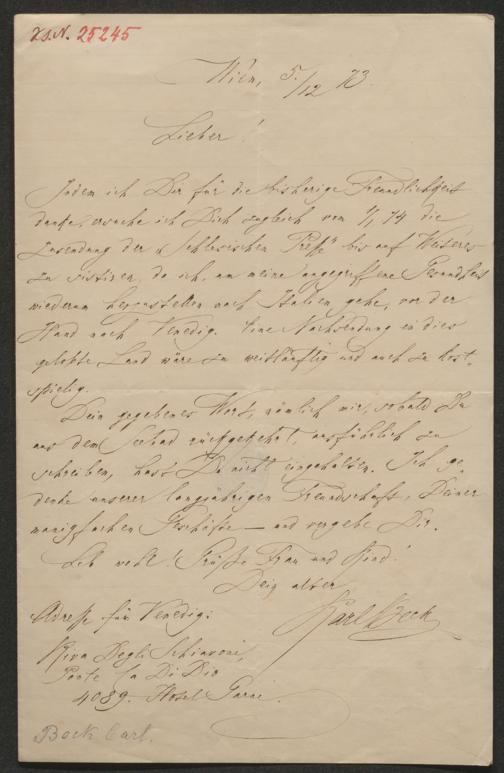 I.N. 25245
Wien, 5/12 73.
Lieber!
Indem ich Dir für die bisherige Freundlichkeit
danke, ersuche ich Dich zugleich vom 1/1 74 die
Zusendung der „Schlesischen Presse" bis auf Weiteres
zu sistiren, da ich, um meine angegriffene Gesundheit
wiederum herzustellen nach Italien gehe, vor der
Hand nach Venedig. Eine Nachsendung in dies
gelobte Land wäre zu weitläuftig und auch zu kost-
spielig.
Dein gegebenes Wort, nämlich mir, sobald Du
aus dem Seebad zurückgekehrt, ausführlich zu
schreiben, hast Du nicht eingehalten. Ich ge-
denke unserer langjährigen Freundschaft, Deiner
manigfachen Geschäfte — und vergebe Dir.
Leb wohl! Grüße Frau und Kind!
Dein alter
Karl Beck
Adresse für Venedig:
Riva Degli Schiavoni,
Ponte Ca Di Dio
4089. Hotel Garni.
Beck Carl.